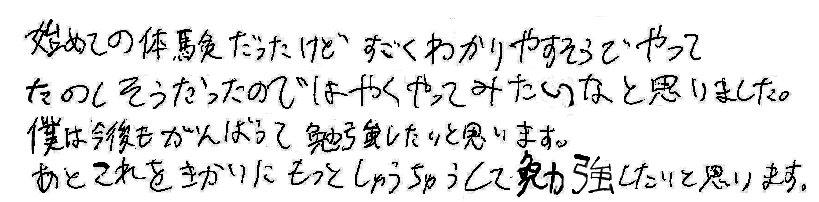 始めての体験だったけど すごくわかりやすそうでやって
たのしそうだったのではやくやってみたいなと思いました。
僕は今後もがんばって勉強したいと思います。
あとこれをきかいにもっとしゅうちゅうして勉強したいと思います。